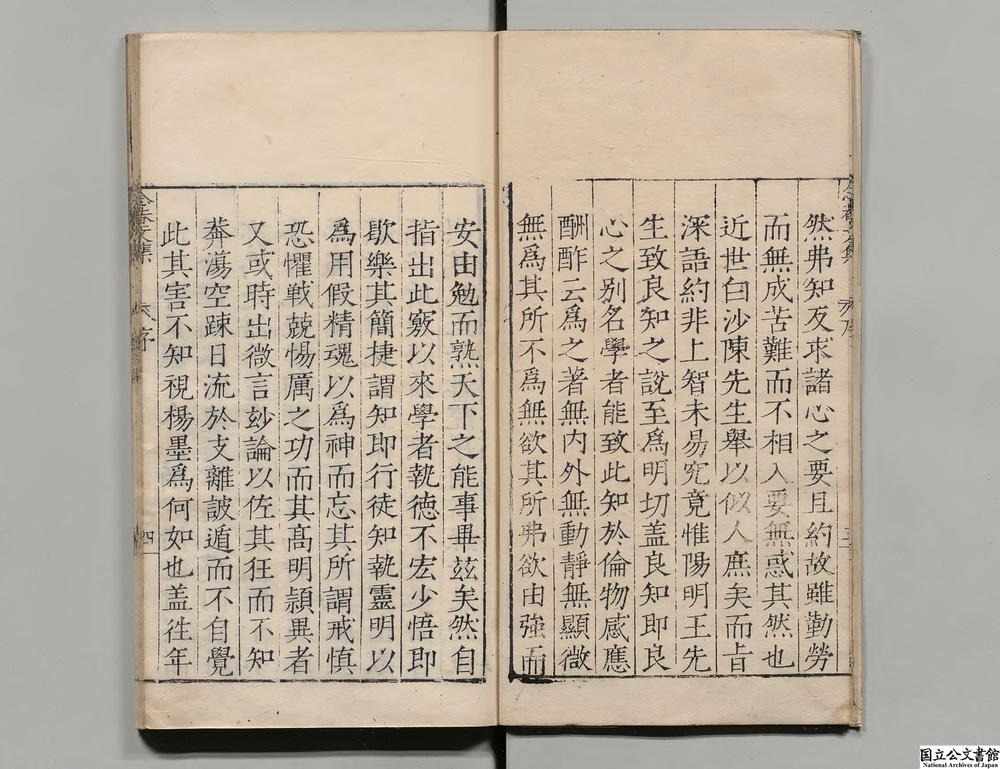 然弗知反求諸心之要且約故雖勤勞
而無成苦難而不相入要無惑其然也
近世白沙陳先生舉以似人庶矣而旨
深語約非上智未易究竟惟陽明王先
生致良知之說至爲明切盖良知即良
心之别名學者能致此知於倫物感應
酬酢云爲之著無内外無動靜無顯微
無爲其所不爲無欲其所弗欲由強而
安由勉而熟天下之能事畢茲矣然自
指出此竅以來學者執德不宏少悟即
歇樂其簡捷謂知即行徒知執靈明以
爲用假精魂以爲神而忘其所謂戒慎
恐懼戦兢惕厲之功而其高明頴異者
又或時出微言玅論以佐其狂而不知
莾蕩空踈日流於支離詖遁而不自覺
此其害不知視楊墨爲何如也盖徃年
文集
序
四
国立公文書館
National Archives of Japan